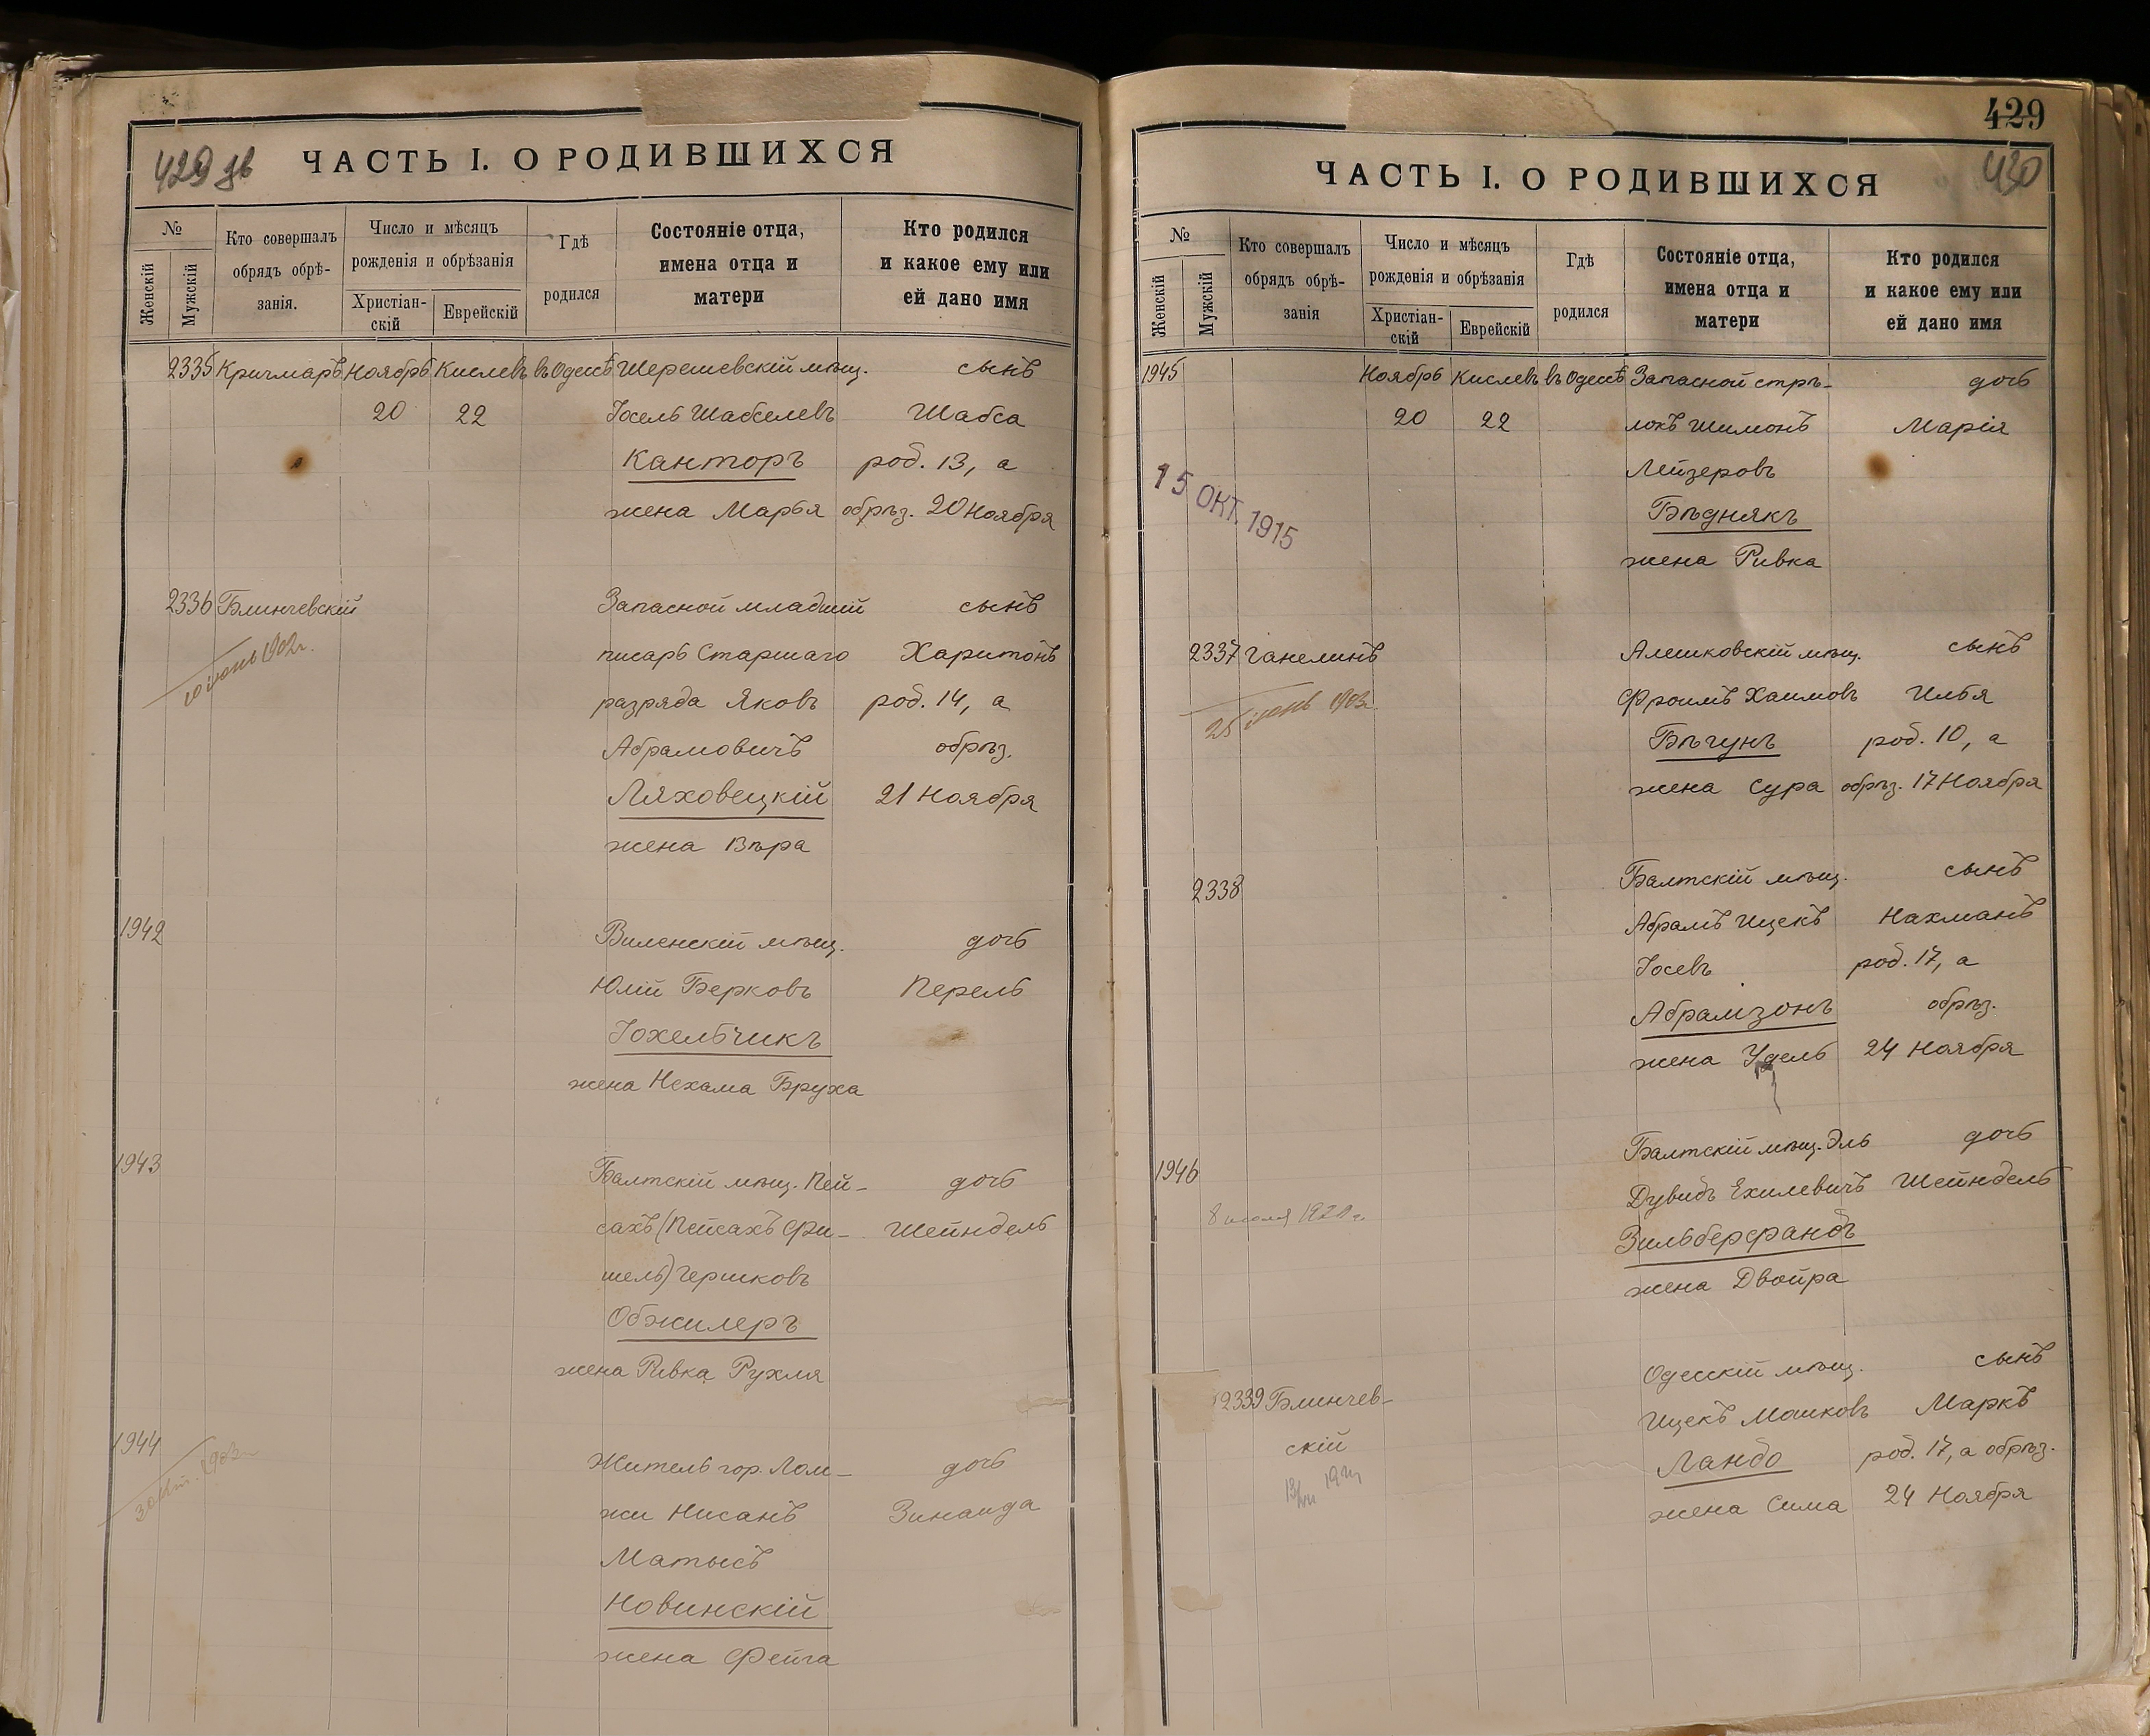 429 зв
ЧАСТЬ I. О РОДИВШИХСЯ
№
Женскій
Мужскій
Кто совершалъ
обрядъ обрѣ-
занія.
Число и мѣсяцъ
рожденія и обрѣзанія
Христіан-
скій
Еврейскій
Гдѣ
родился
Состояніе отца,
имена отца и
матери
Кто родился
и какое ему или
ей дано имя
2335 Кричмаръ Ноябрь Кислевъ въ Одессѣ Шерешевскій мѣщ. сынъ
20 22 Іосель Шабселевъ Шабса
Канторъ род. 13, а
жена Марья обрѣз. 20 Ноября
2336 Блинчевскій Запасной младшій сынъ
10 іюнь 1902 г.
писарь Старшаго Харитонъ
разряда Яковъ род. 14, а
Абрамовичъ обрѣз.
Ляховецкій 21 Ноября
жена Вѣра
1942 Виленскій мѣщ. дочь
Юлій Берковъ Перель
Іохельчикъ
жена Нехама Бруха
1943 Балтскій мѣщ. Пей-
дочь
сахъ (Пейсахъ Фи- Шейндель
шель) Гершковъ
Обжилеръ
жена Ривка Рухля
1944 Житель гор. Лом- дочь
1903
жи Нисанъ Зинаида
Матысъ
Новинскій
жена Фейга
429
430
ЧАСТЬ I. О РОДИВШИХСЯ
№
Женскій
Мужскій
Кто совершалъ
обрядъ обрѣ-
занія
Число и мѣсяцъ
рожденія и обрѣзанія
Христіан-
скій
Еврейскій
Гдѣ
родился
Состояніе отца,
имена отца и
матери
Кто родился
и какое ему или
ей дано имя
1945 Ноябрь Кислевъ въ Одессѣ Запасной стрѣ- дочь
20 22 локъ Шимонъ Марія
Лейзеровъ
15 ОКТ. 1915
Бѣднякъ
жена Ривка
2337 Ганелинъ Алешковскій мѣщ. сынъ
25 іюнь 1903 г.
Фроимъ Хаимовъ Илья
Бѣгунъ род. 10, а
жена Сура обрѣз. 17 Ноября
2338 Балтскій мѣщ. сынъ
Абрамъ Ицекъ Нахманъ
Іосевъ род. 17, а
Абрамзонъ обрѣз.
жена Удель 24 Ноября
1946 Балтскій мѣщ. Эль дочь
Дувидъ Ехилевичъ Шейндель
Зильберфандъ
жена Двойра
2339 Блинчев- Одесскій мѣщ. сынъ
скій Ицекъ Мошковъ Маркъ
Ландо род. 17, а обрѣз.
жена Сима 24 Ноября